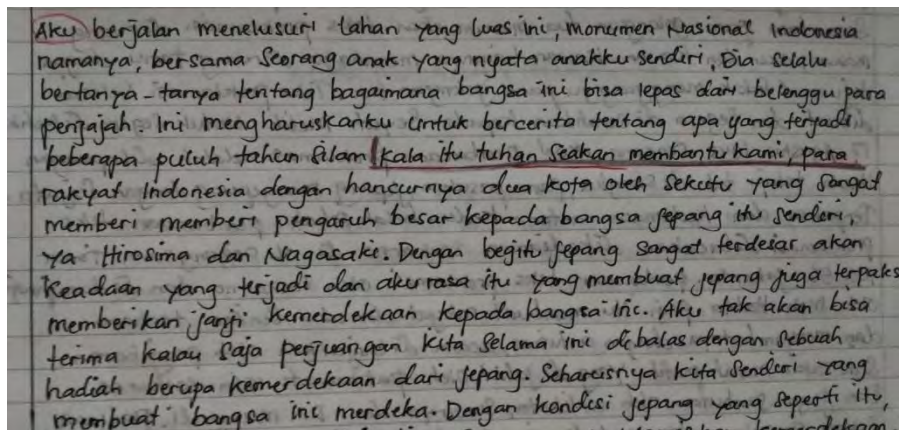 Aku berjalan menelusuri lahan yang luas ini, monumen Nasional Indonesia
namanya, bersama Seorang anak yang nyata anakku sendiri. Dia selalu
bertanya-tanya tentang bagaimana bangsa ini bisa lepas dari belenggu para
penjajah. Ini mengharuskanku untuk bercerita tentang apa yang terjadi
beberapa puluh tahun silam kala itu tuhan seakan membantu kami, para
rakyat Indonesia dengan hancurnya dua kota oleh sekutu yang sangat
memberi memberi pengaruh besar kepada bangsa jepang itu sendiri,
ya Hirosima dan Nagasaki. Dengan begitu jepang sangat terdesar akan
keadaan yang terjadi dan aku rasa itu yang membuat jepang juga terpaks
memberikan janji kemerdekaan kepada bangsa ini. Aku tak akan bisa
terima kalau saja perjuangan kita selama ini dibalas dengan sebuah
hadiah berupa kemerdekaan dari jepang. Seharusnya kita sendiri yang
membuat bangsa ini merdeka. Dengan kondisi jepang yang seperti itu,